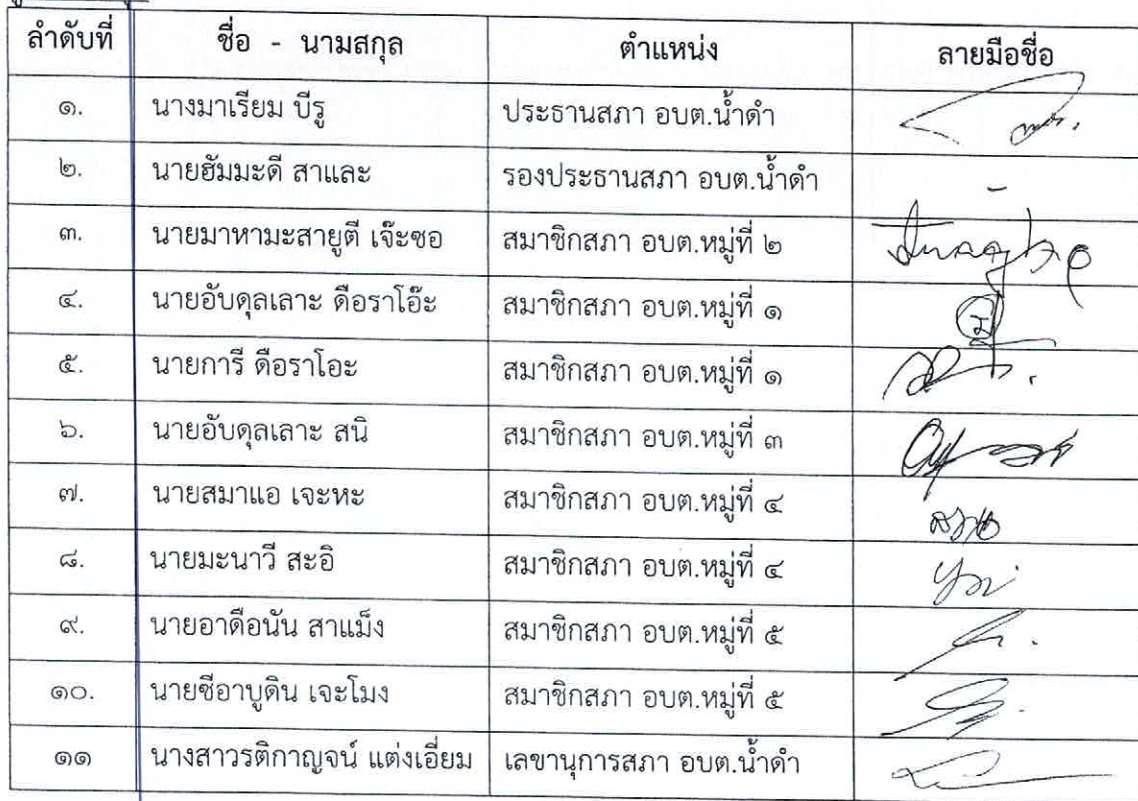 ลำดับที่ ชื่อ - นามสกุล ตำแหน่ง ลายมือชื่อ
๑. นางมาเรียม บีรู ประธานสภา อบต.น้ำดำ
๒. นายฮัมมะดี สาและ รองประธานสภา อบต.น้ำดำ -
๓. นายมาหามะสายูตี เจ๊ะซอ สมาชิกสภา อบต.หมู่ที่ ๒
๔. นายอับดุลเลาะ ดือราโอ๊ะ สมาชิกสภา อบต.หมู่ที่ ๑
๕. นายการี ดือราโอะ สมาชิกสภา อบต.หมู่ที่ ๑
๖. นายอับดุลเลาะ สนิ สมาชิกสภา อบต.หมู่ที่ ๓
๗. นายสมาแอ เจะหะ สมาชิกสภา อบต.หมู่ที่ ๔
๘. นายมะนาวี สะอิ สมาชิกสภา อบต.หมู่ที่ ๔
๙. นายอาดือนัน สาแม็ง สมาชิกสภา อบต.หมู่ที่ ๕
๑๐. นายซีอาบูดิน เจะโมง สมาชิกสภา อบต.หมู่ที่ ๕
๑๑ นางสาวรติกาญจน์ แต่งเอี่ยม เลขานุการสภา อบต.น้ำดำ